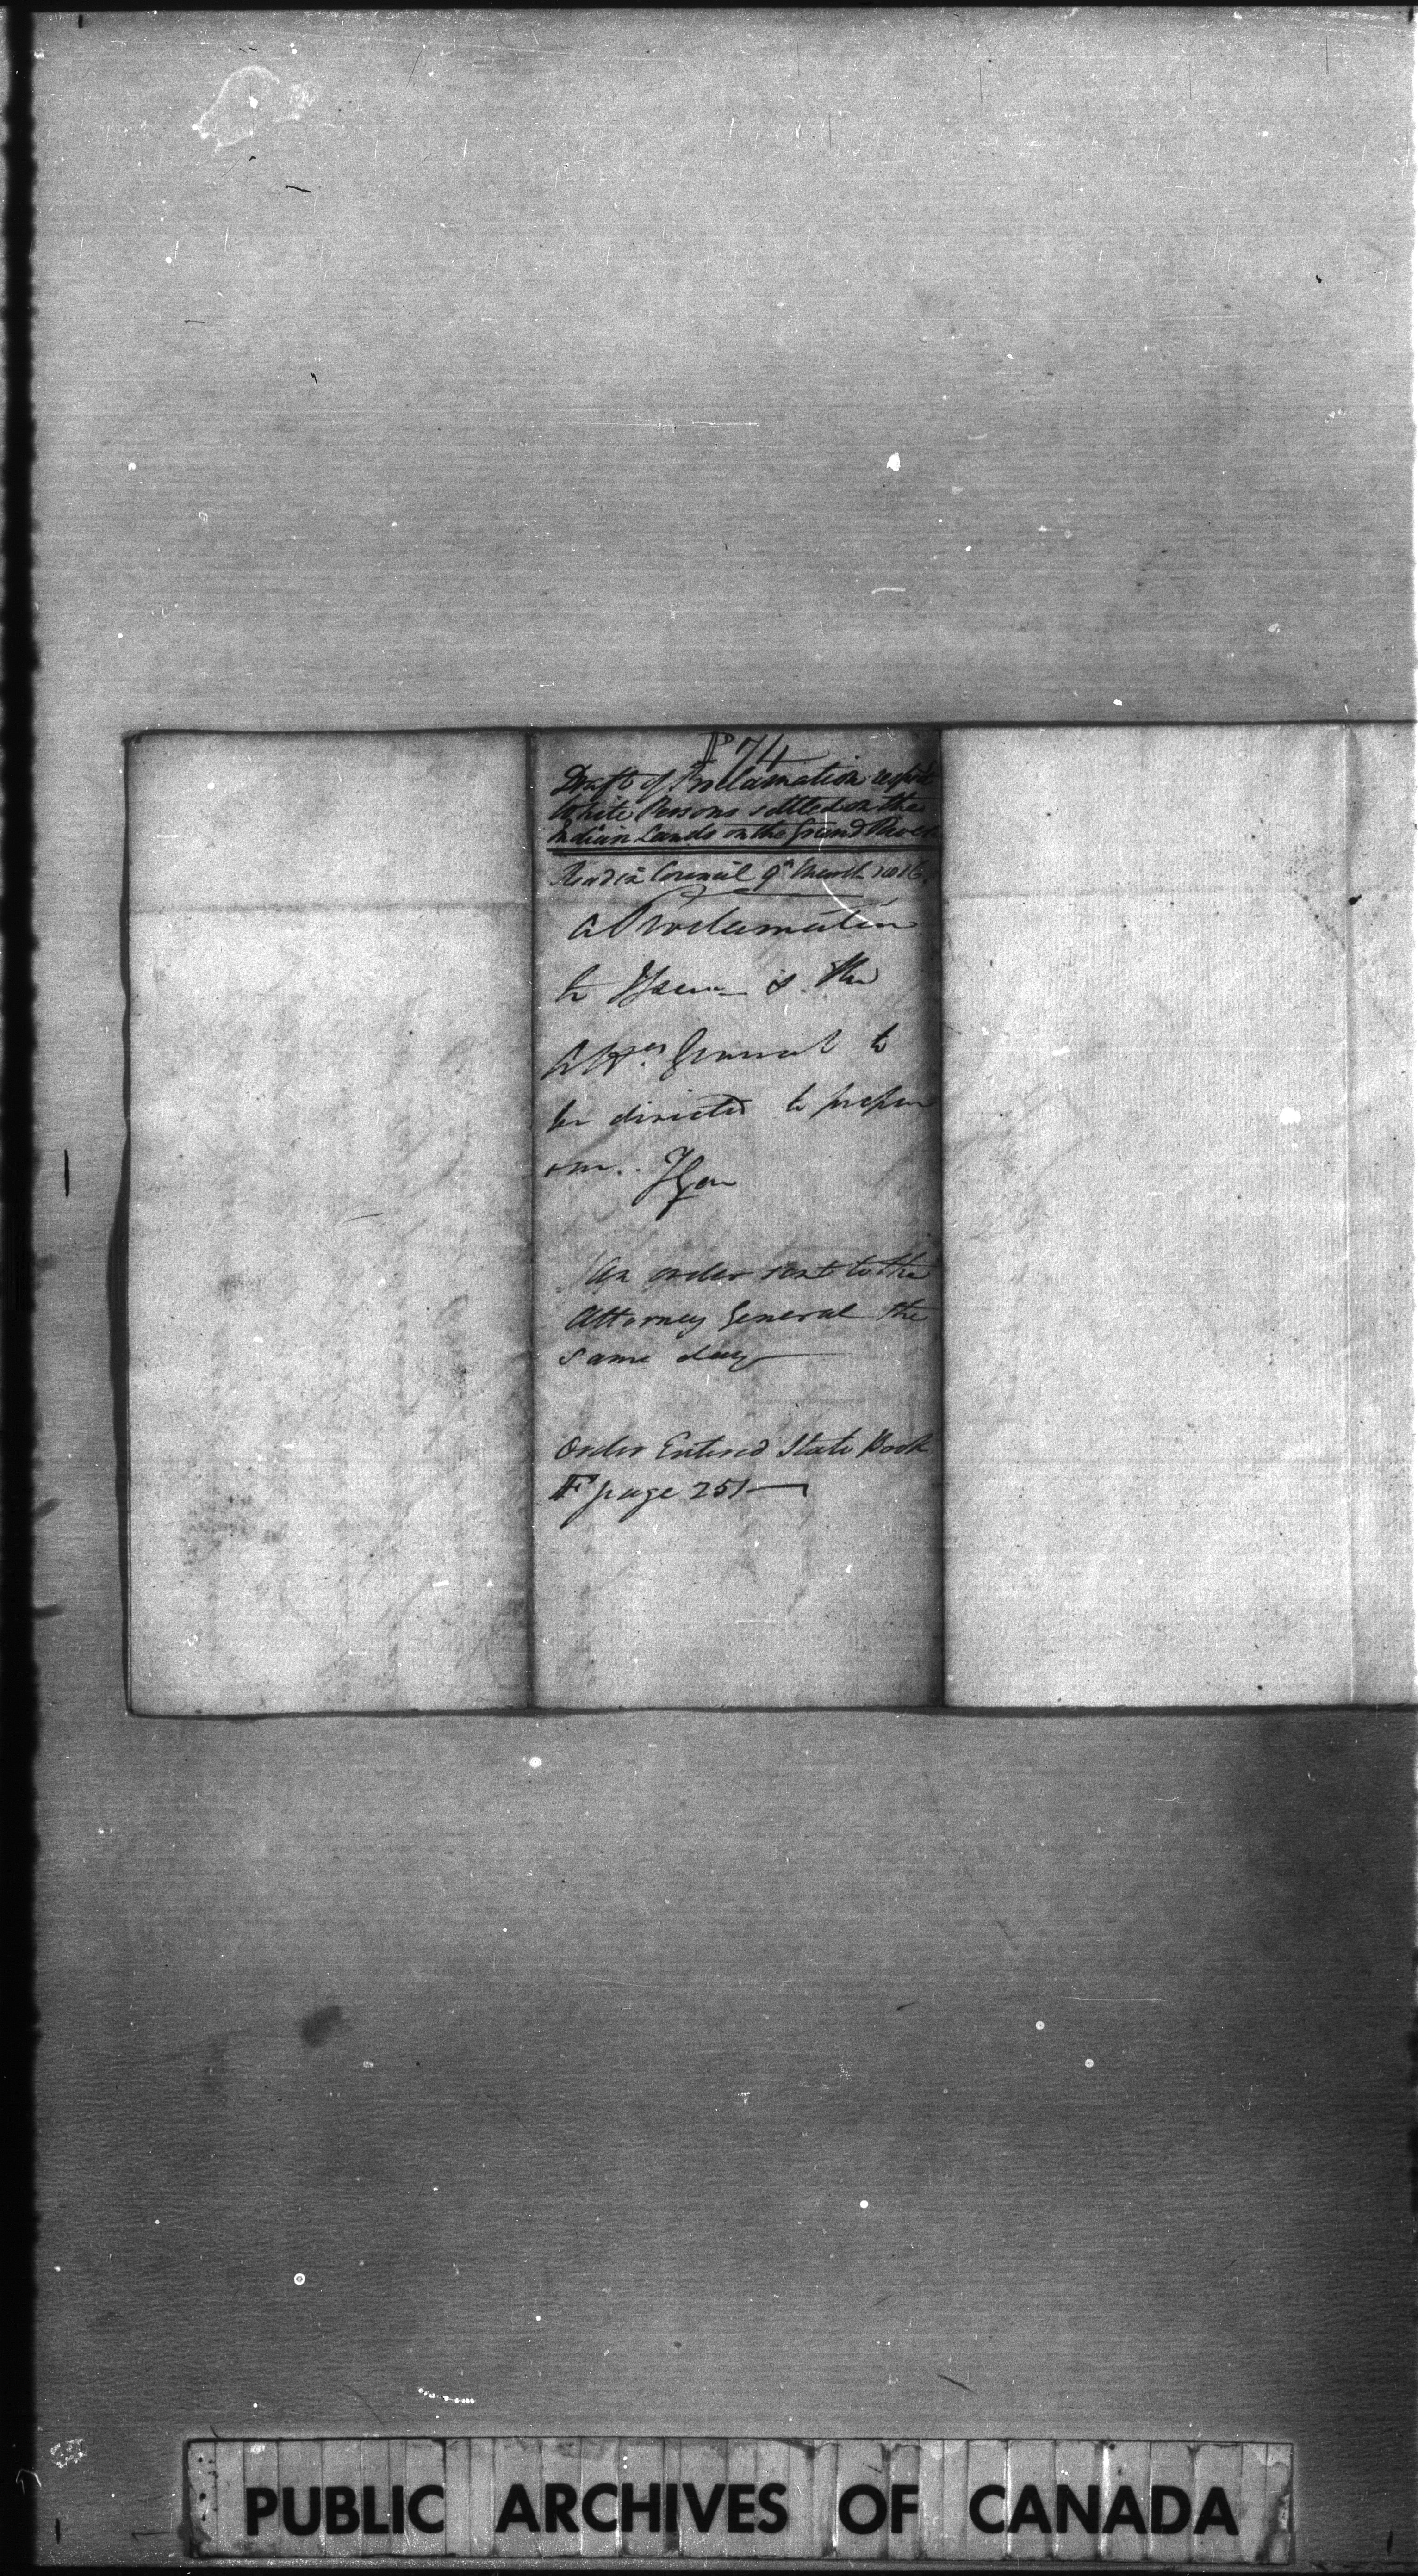 P 74
Draft of Proclamation respect
White Persons settled on the
Indian Lands on the Grand River
Read in Council 9th March 1816.
A Proclamation
to Issue & the
Atty. General to
be directed to prepare
one.
An order sent to the
Attorney General the
same day
Order Entered State Book
F page 251
PUBLIC ARCHIVES OF CANADA